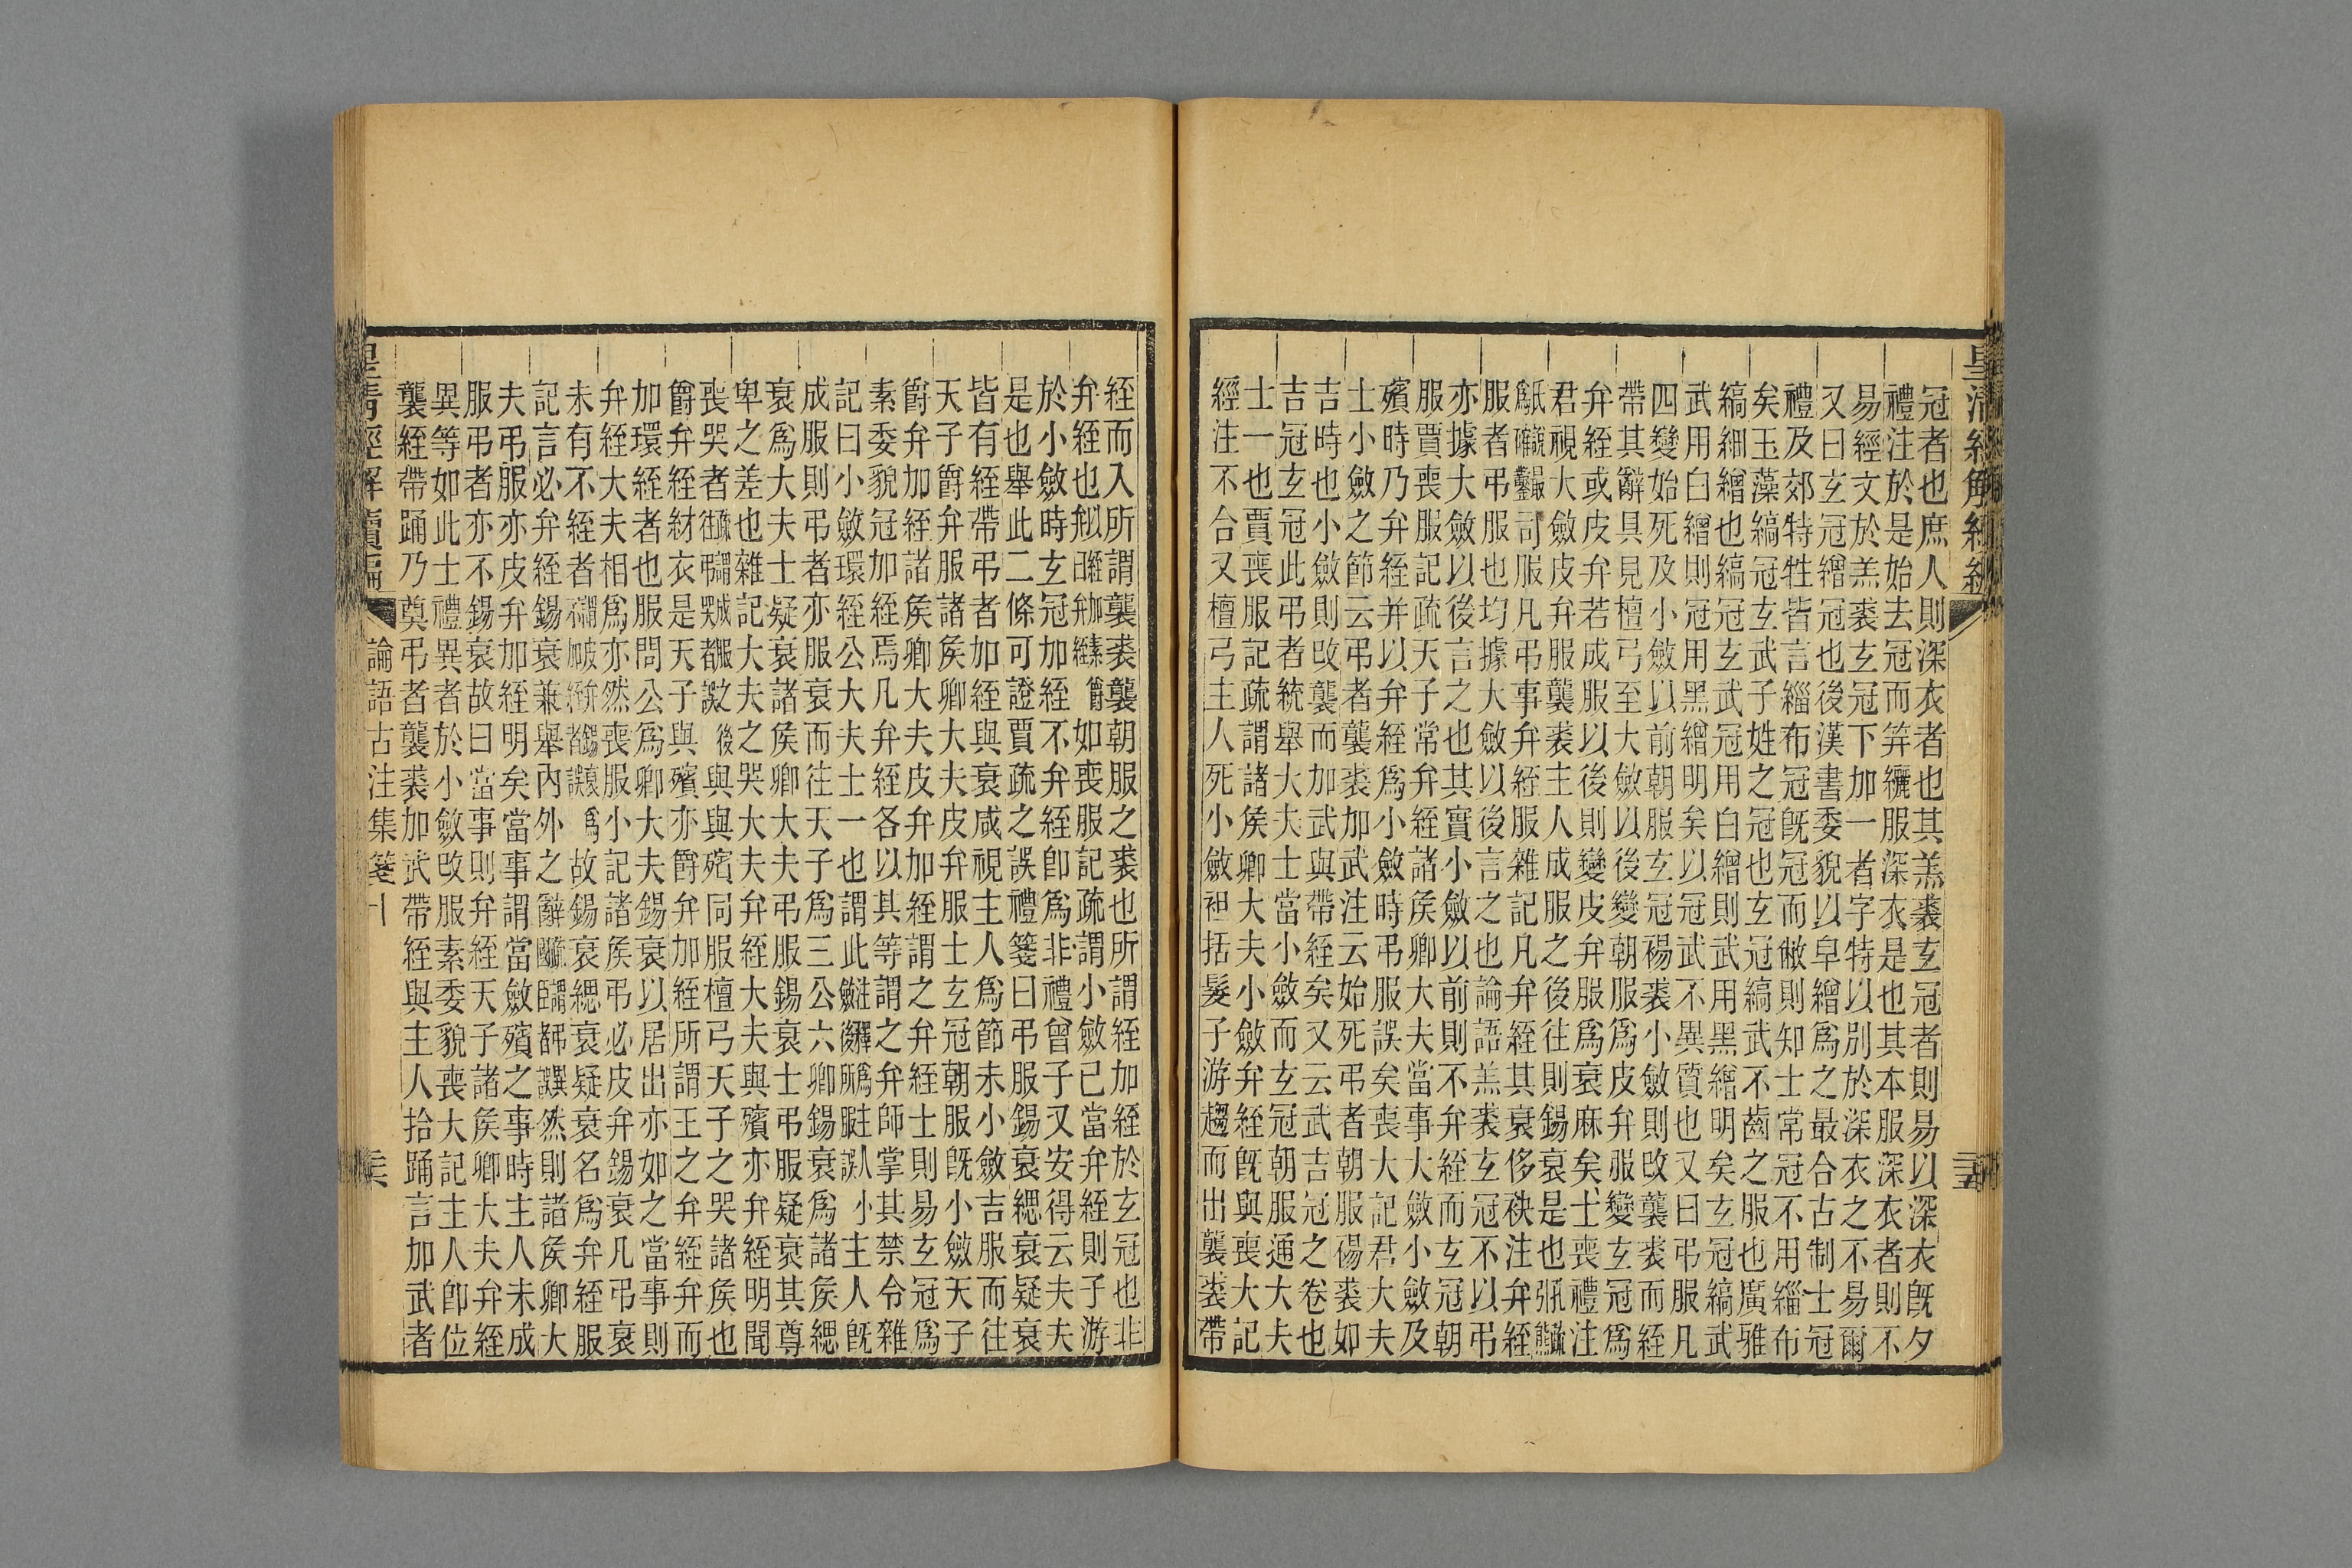 冠者也庶人則深衣者也其羔裘玄冠者則易以深衣既夕
禮注於是始去冠而笄纚服深衣是也其本服深衣者則不
易經文於羔裘玄冠下加一者字特以別於深衣之不易爾
又曰玄冠繒冠也後漢書委貌以皁繒爲之最合古制士冠
禮及郊特牲皆言緇布冠旣冠而敝則知士常冠不用緇布
矣玉藻縞冠玄武子姓之冠也玄冠縞武不齒之服也廣雅
縞細繒也縞冠玄武冠用白繒則武用黑繒明矣玄冠縞武
武用白繒則冠用黑繒明矣以冠武不異質也又曰弔服凡
四變始死及小斂以前朝服玄冠裼裘小斂則改襲裘而絰
帶其辭具見檀弓至大斂以後變朝服爲皮弁服變玄冠爲
弁絰或皮弁若成服以後則變皮弁服爲衰麻矣士喪禮注
君視大斂皮弁服襲裘主人成服之後往則錫衰是也
司服凡弔事弁絰服雜記凡弁絰其衰侈袂注弁絰
服者弔服也均據大斂以後言之也論語羔裘玄冠不以弔
亦據大斂以後言之也其實小斂以前則不弁絰而玄冠朝
服賈喪服記疏天子常弁絰諸矦卿大夫當事大斂小斂及
殯時乃弁絰并以弁絰爲小斂時弔服誤矣喪大記君大夫
士小斂之節云弔者襲裘加武注云始死弔者朝服裼裘如
吉時也小斂則改襲而加武與帶絰矣又云武吉冠之卷也
吉冠玄冠此弔者統舉大夫士當小斂而玄冠朝服通大夫
士一也賈喪服記疏謂諸矦卿大夫小斂弁絰旣與喪大記
經注不合又檀弓主人死小斂袒括髮子游趨而出襲裘帶
絰而入所謂襲裘襲朝服之裘也所謂絰加絰於玄冠也非
弁絰也如喪服記疏謂小斂已當弁絰則子游
於小斂時玄冠加絰不弁絰卽爲非禮曾子又安得云夫夫
是也舉此二條可證賈疏之誤禮箋曰弔服錫衰緦衰疑衰
皆有絰帶弔者加絰與衰咸視主人爲節未小斂吉服而往
天子爵弁服諸矦卿大夫皮弁服士玄冠朝服旣小斂天子
爵弁加絰諸矦卿大夫皮弁加絰謂之弁絰士則易玄冠爲
素委貌冠加絰焉凡弁絰各以其等謂之弁師掌其禁令雜
記曰小斂環絰公大夫士一也謂此小主人旣
成服則弔者亦服衰而往天子爲三公六卿錫衰爲諸矦緦
衰爲大夫士疑衰諸矦卿大夫弔服錫衰士弔服疑衰其尊
卑之差也雜記大夫之哭大夫弁絰大夫與殯亦弁絰明聞
喪哭者與殯同服檀弓天子之哭諸矦也
爵弁絰紂衣是天子與殯亦爵弁加絰所謂王之弁絰弁而
加環絰者也服問公爲卿大夫錫衰以居出亦如之當事則
弁絰大夫相爲亦然喪服小記諸矦弔必皮弁錫衰凡弔衰
未有不絰者爲故錫衰緦衰疑衰名爲弁絰服
記言必弁絰錫衰兼舉內外之辭然則諸矦卿大
夫弔服亦皮弁加絰明矣當事謂當斂殯之事時主人未成
服弔者亦不錫衰故曰當事則弁絰天子諸矦卿大夫弁絰
異等如此士禮異者於小斂改服素委貌喪大記主人卽位
襲絰帶踊乃奠弔者襲裘加武帶絰與主人拾踊言加武者
論語古注集箋十